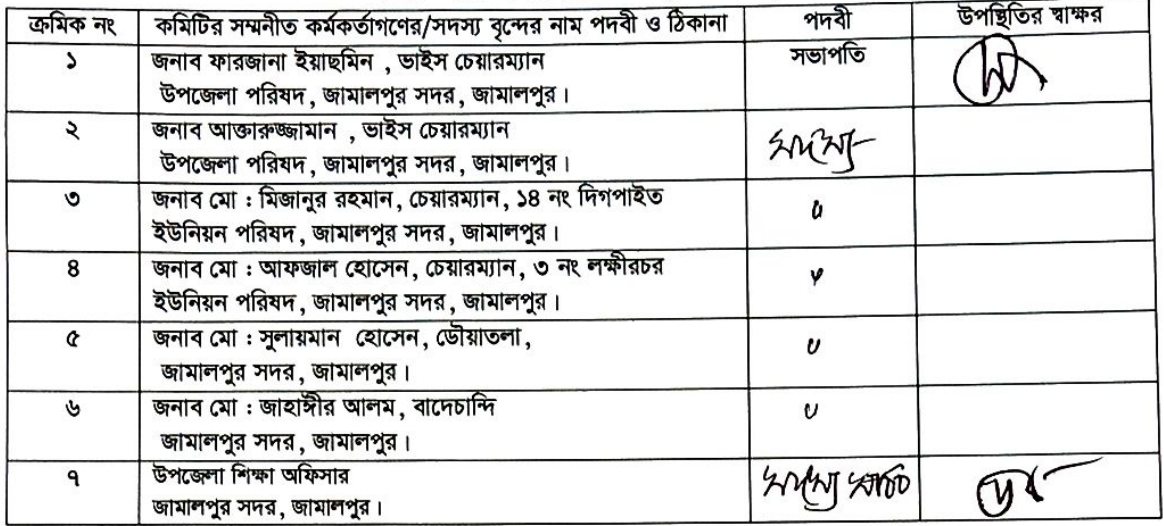 ক্রমিক নং কমিটির সম্মনীত কর্মকর্তাগণের/সদস্য বৃন্দের নাম পদবী ও ঠিকানা পদবী উপস্থিতির স্বাক্ষর
১ জনাব ফারজানা ইয়াছমিন , ভাইস চেয়ারম্যান সভাপতি
উপজেলা পরিষদ, জামালপুর সদর, জামালপুর।
২ জনাব আক্তারুজ্জামান , ভাইস চেয়ারম্যান
উপজেলা পরিষদ, জামালপুর সদর, জামালপুর। সদস্য
৩ জনাব মো : মিজানুর রহমান, চেয়ারম্যান, ১৪ নং দিগপাইত
ইউনিয়ন পরিষদ, জামালপুর সদর, জামালপুর। "
৪ জনাব মো : আফজাল হোসেন, চেয়ারম্যান, ৩ নং লক্ষীরচর
ইউনিয়ন পরিষদ, জামালপুর সদর, জামালপুর। "
৫ জনাব মো : সুলায়মান হোসেন, ডৌয়াতলা,
জামালপুর সদর, জামালপুর। "
৬ জনাব মো : জাহাঙ্গীর আলম, বাদেচান্দি "
জামালপুর সদর, জামালপুর।
৭ উপজেলা শিক্ষা অফিসার সদস্য সচিব
জামালপুর সদর, জামালপুর।